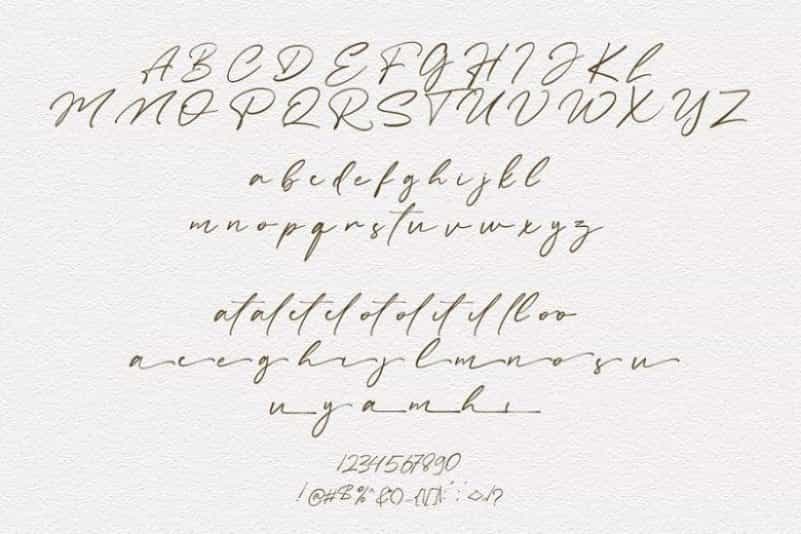 A B C D E F G H I J K L
M N O P Q R S T U V W X Y Z
a b c d e f g h i j k l
m n o p q r s t u v w x y z
at al et el ot ol it il ll oo
a c e g h i j l m n o s u
u y a m h i
1234567890